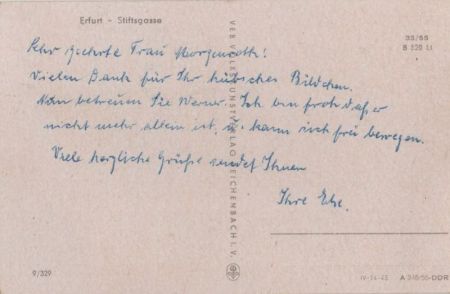 Erfurt - Stiftsgasse
35/56
B 529 Lt
Sehr geehrte Frau Morgenroth!
Vielen Dank für Ihr hübsches Bildchen.
Nun betreuen Sie Werner. Ich bin froh daß er
nicht mehr allein ist, u. kann sich frei bewegen.
Viele herzliche Grüße sendet Ihnen
Ihre
VEB VOLKSKUNSTVERLAG REICHENBACH I. V.
9/329
IV-14-45 A 346/56-DDR